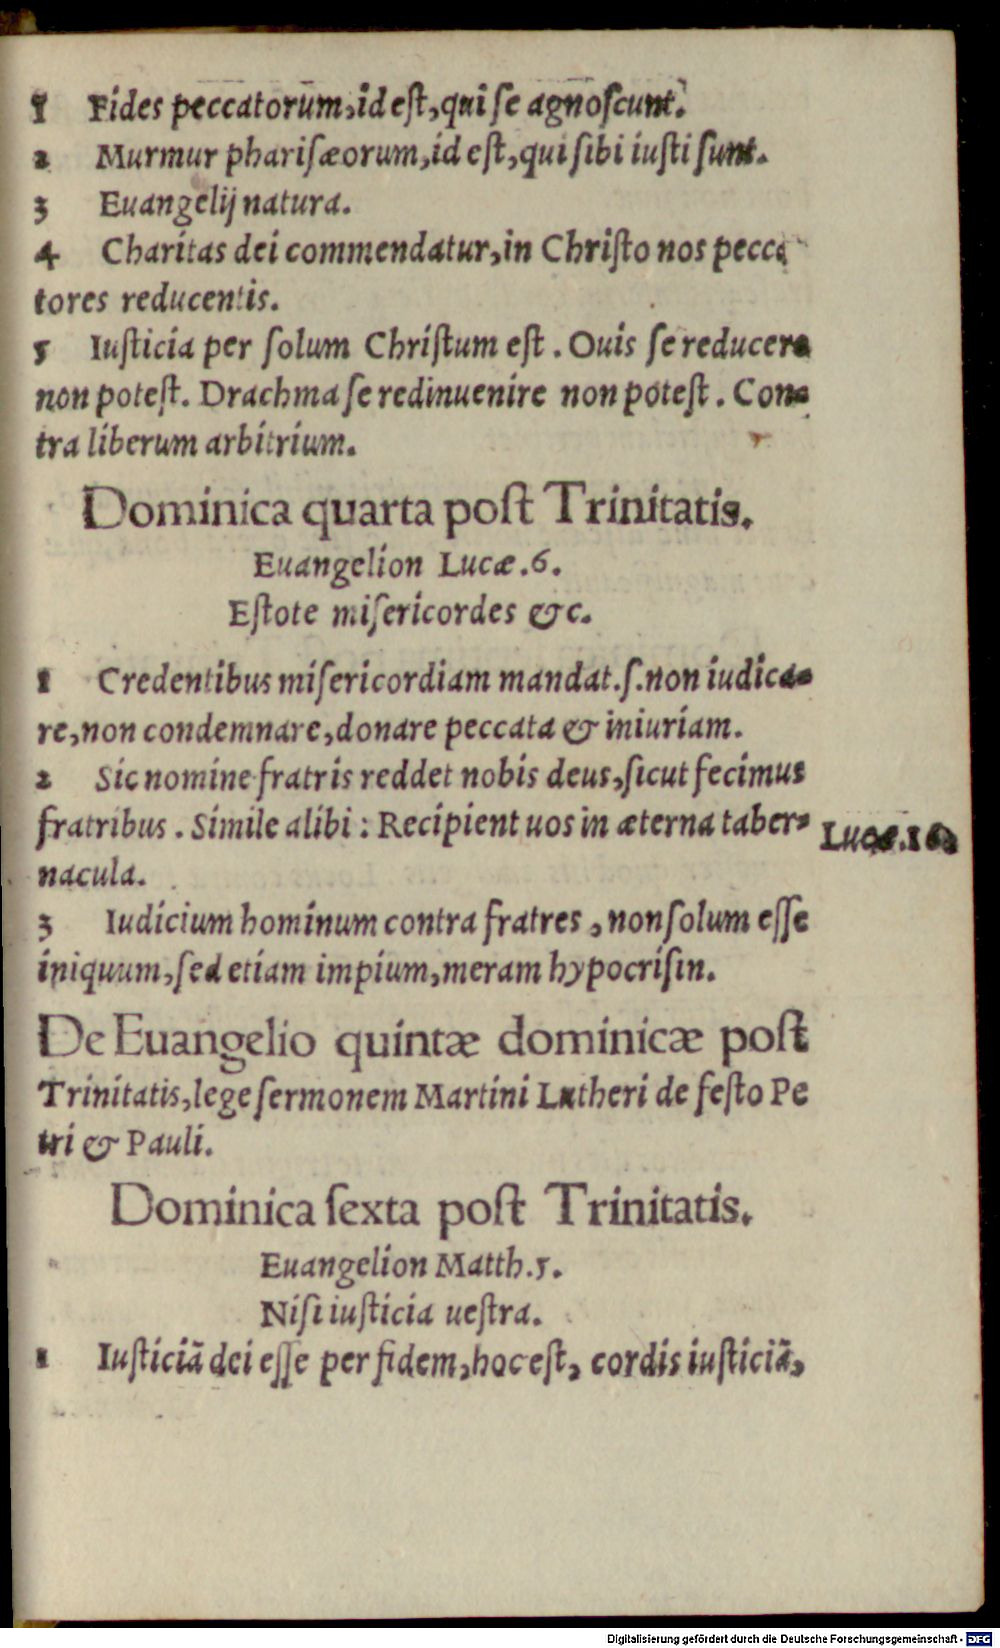 1 Fides peccatorum, id eſt, qui ſe agnoſcunt.
2 Murmur phariſæorum, id eſt, qui ſibi iuſti ſunt.
3 Euangelij natura.
4 Charitas dei commendatur, in Chriſto nos pecca
tores reducentis.
5 Iuſticia per ſolum Chriſtum eſt. Ouis ſe reducere
non poteſt. Drachma ſe redinuenire non poteſt. Con⸗
tra liberum arbitrium.
Dominica quarta poſt Trinitatis.
Euangelion Lucæ.6.
Eſtote miſericordes &c.
1 Credentibus miſericordiam mandat.ſ.non iudica⸗
re, non condemnare, donare peccata & iniuriam.
2 Sic nomine fratris reddet nobis deus, ſicut fecimus
fratribus. Simile alibi: Recipient uos in æterna taber⸗
Lucæ.16.
nacula.
3 Iudicium hominum contra fratres, non ſolum eſſe
iniquum, ſed etiam impium, meram hypocriſin.
De Euangelio quintæ dominicæ poſt
Trinitatis, lege ſermonem Martini Lutheri de feſto Pe
tri & Pauli.
Dominica ſexta poſt Trinitatis.
Euangelion Matth.5.
Niſi iuſticia ueſtra.
1 Iuſticiã dei eſſe per fidem, hoc eſt, cordis iuſticiã,
Digitalisierung gefördert durch die Deutsche Forschungsgemeinschaft - DFG